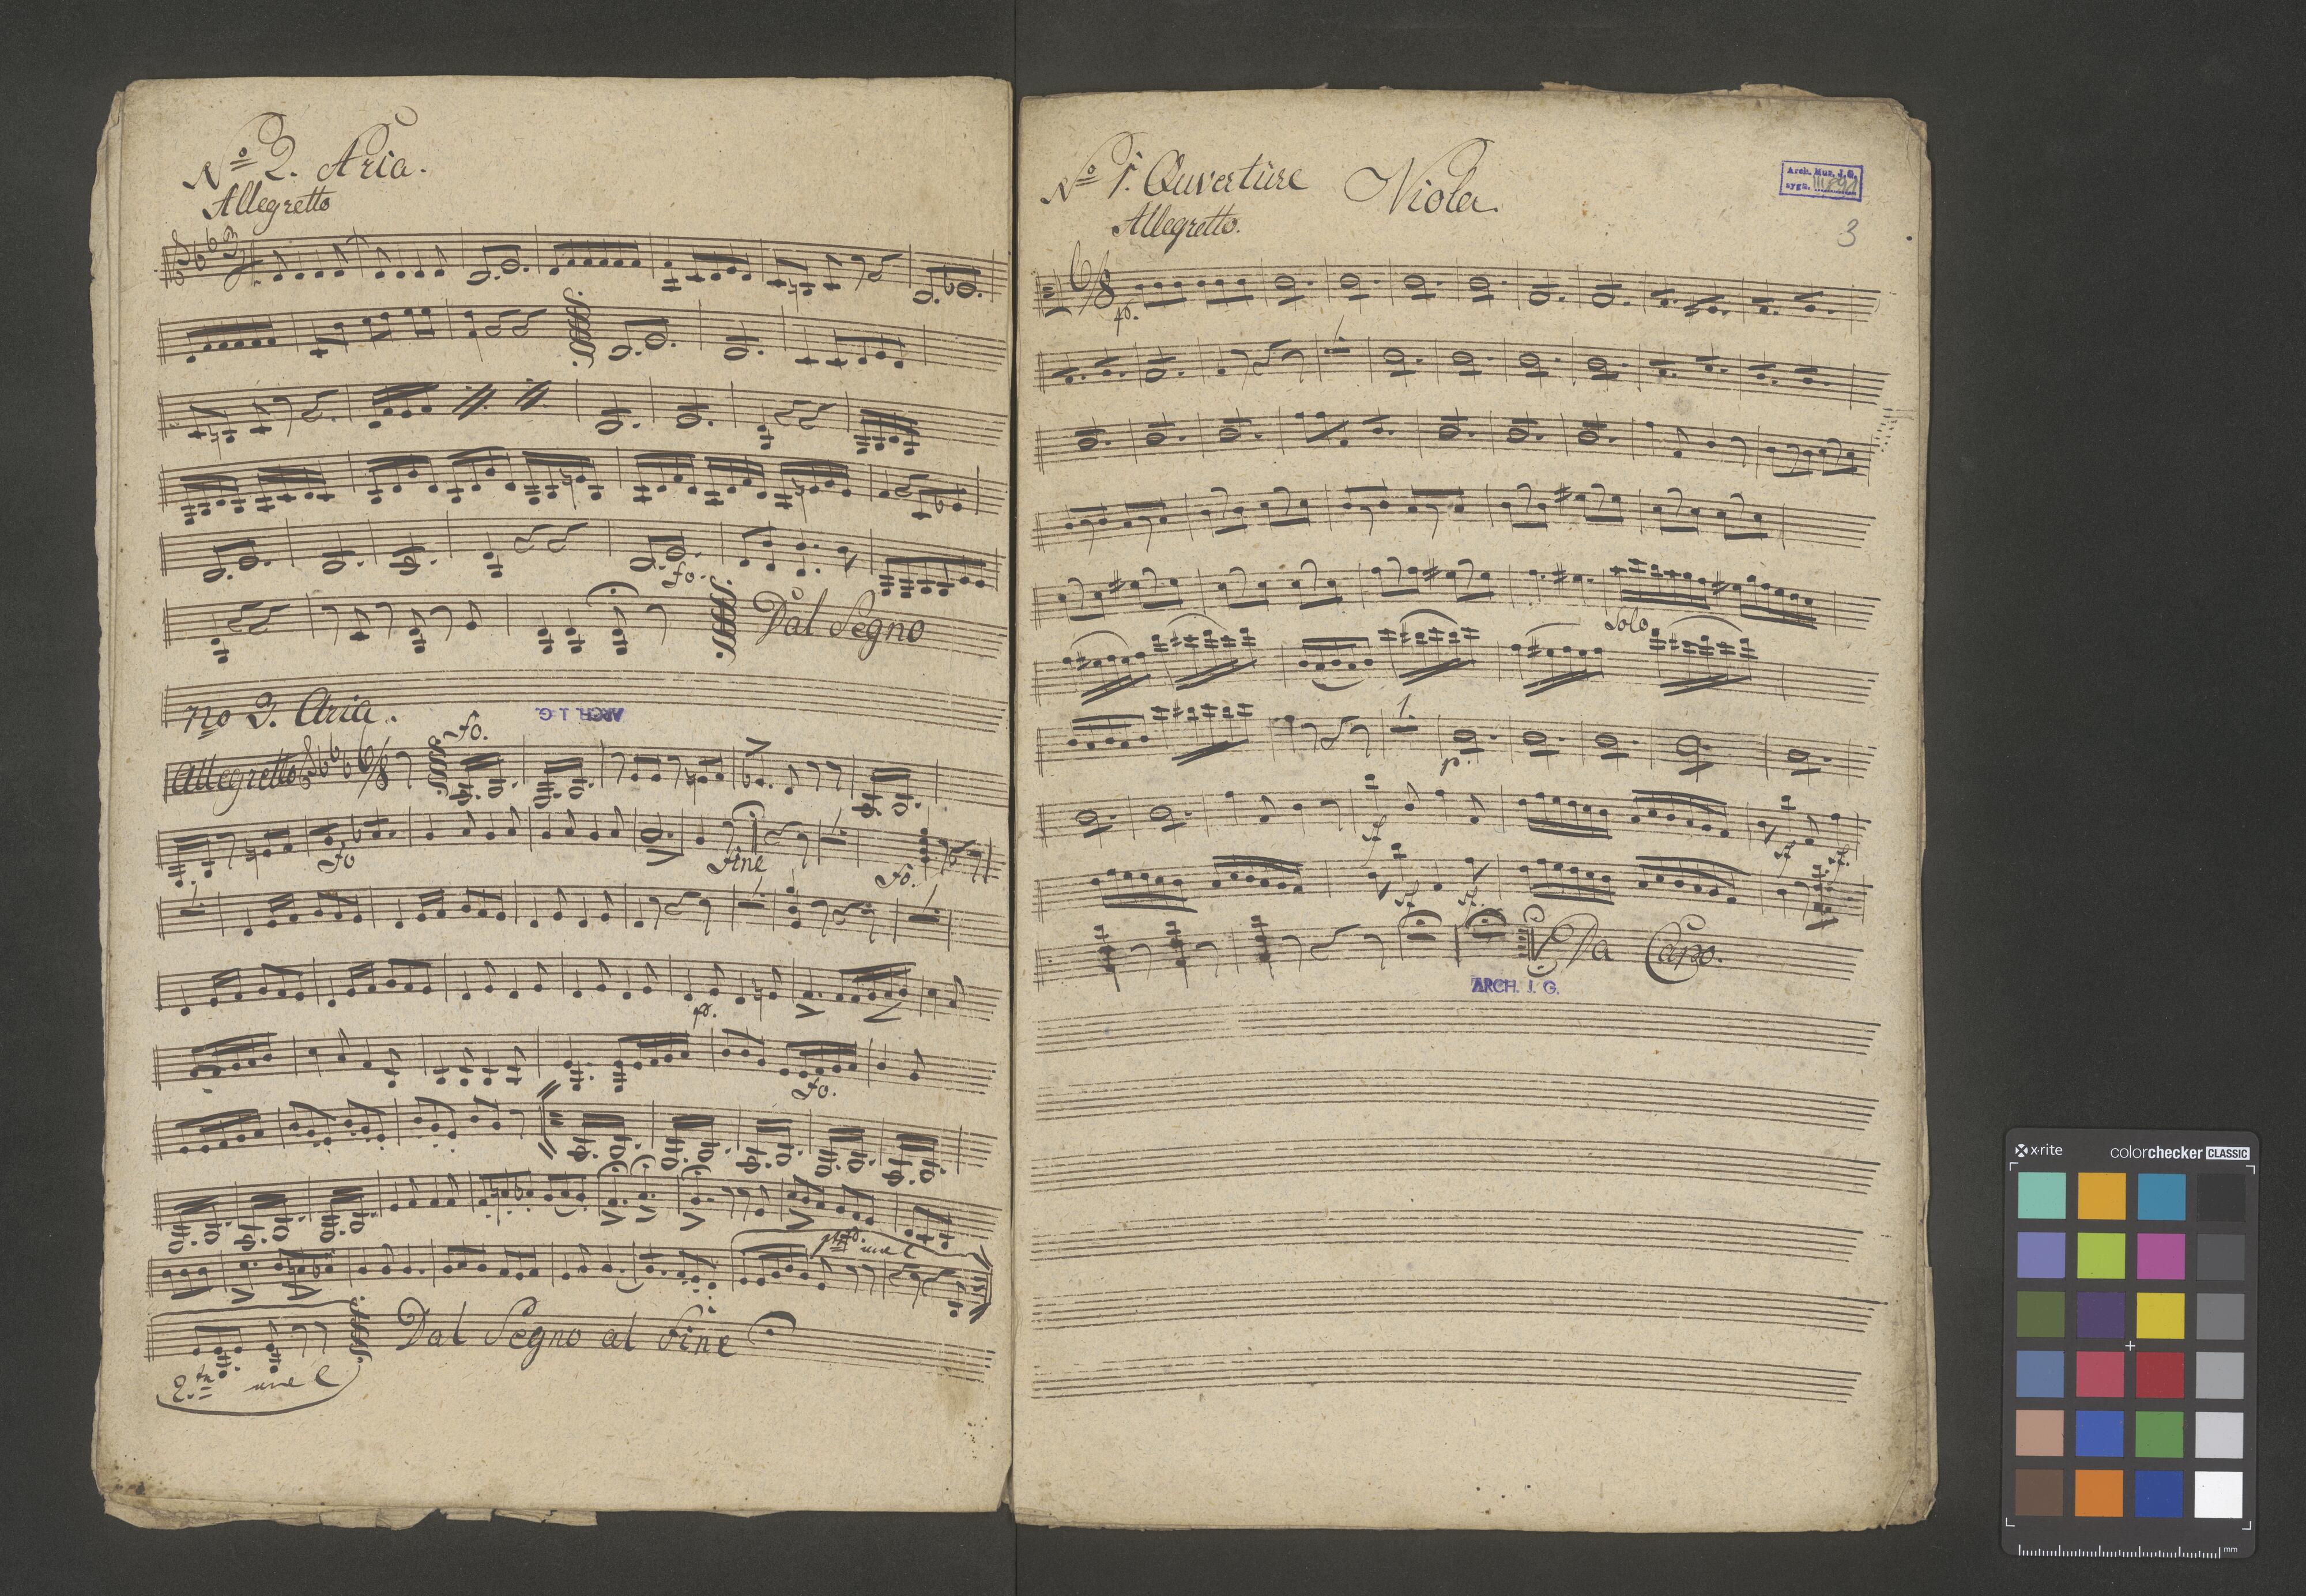 No 2. Aria.
Allegretto
fo.
Dal Segno
no 3. Aria.
ARCH. J. G.
fo.
Allegretto 6/8
fo
fine
fo.
p.
fo.
Dal Segno al Fine
2.
No 1. Ouverture Viola.
Allegretto.
Arch. Muz. J. G.
sygn.
3
6/8
p.
Solo
1.
p.
sf
sf
sf.
sf
sf.
Da Capo.
ARCH. J. G.
x-rite
colorchecker CLASSIC
mm